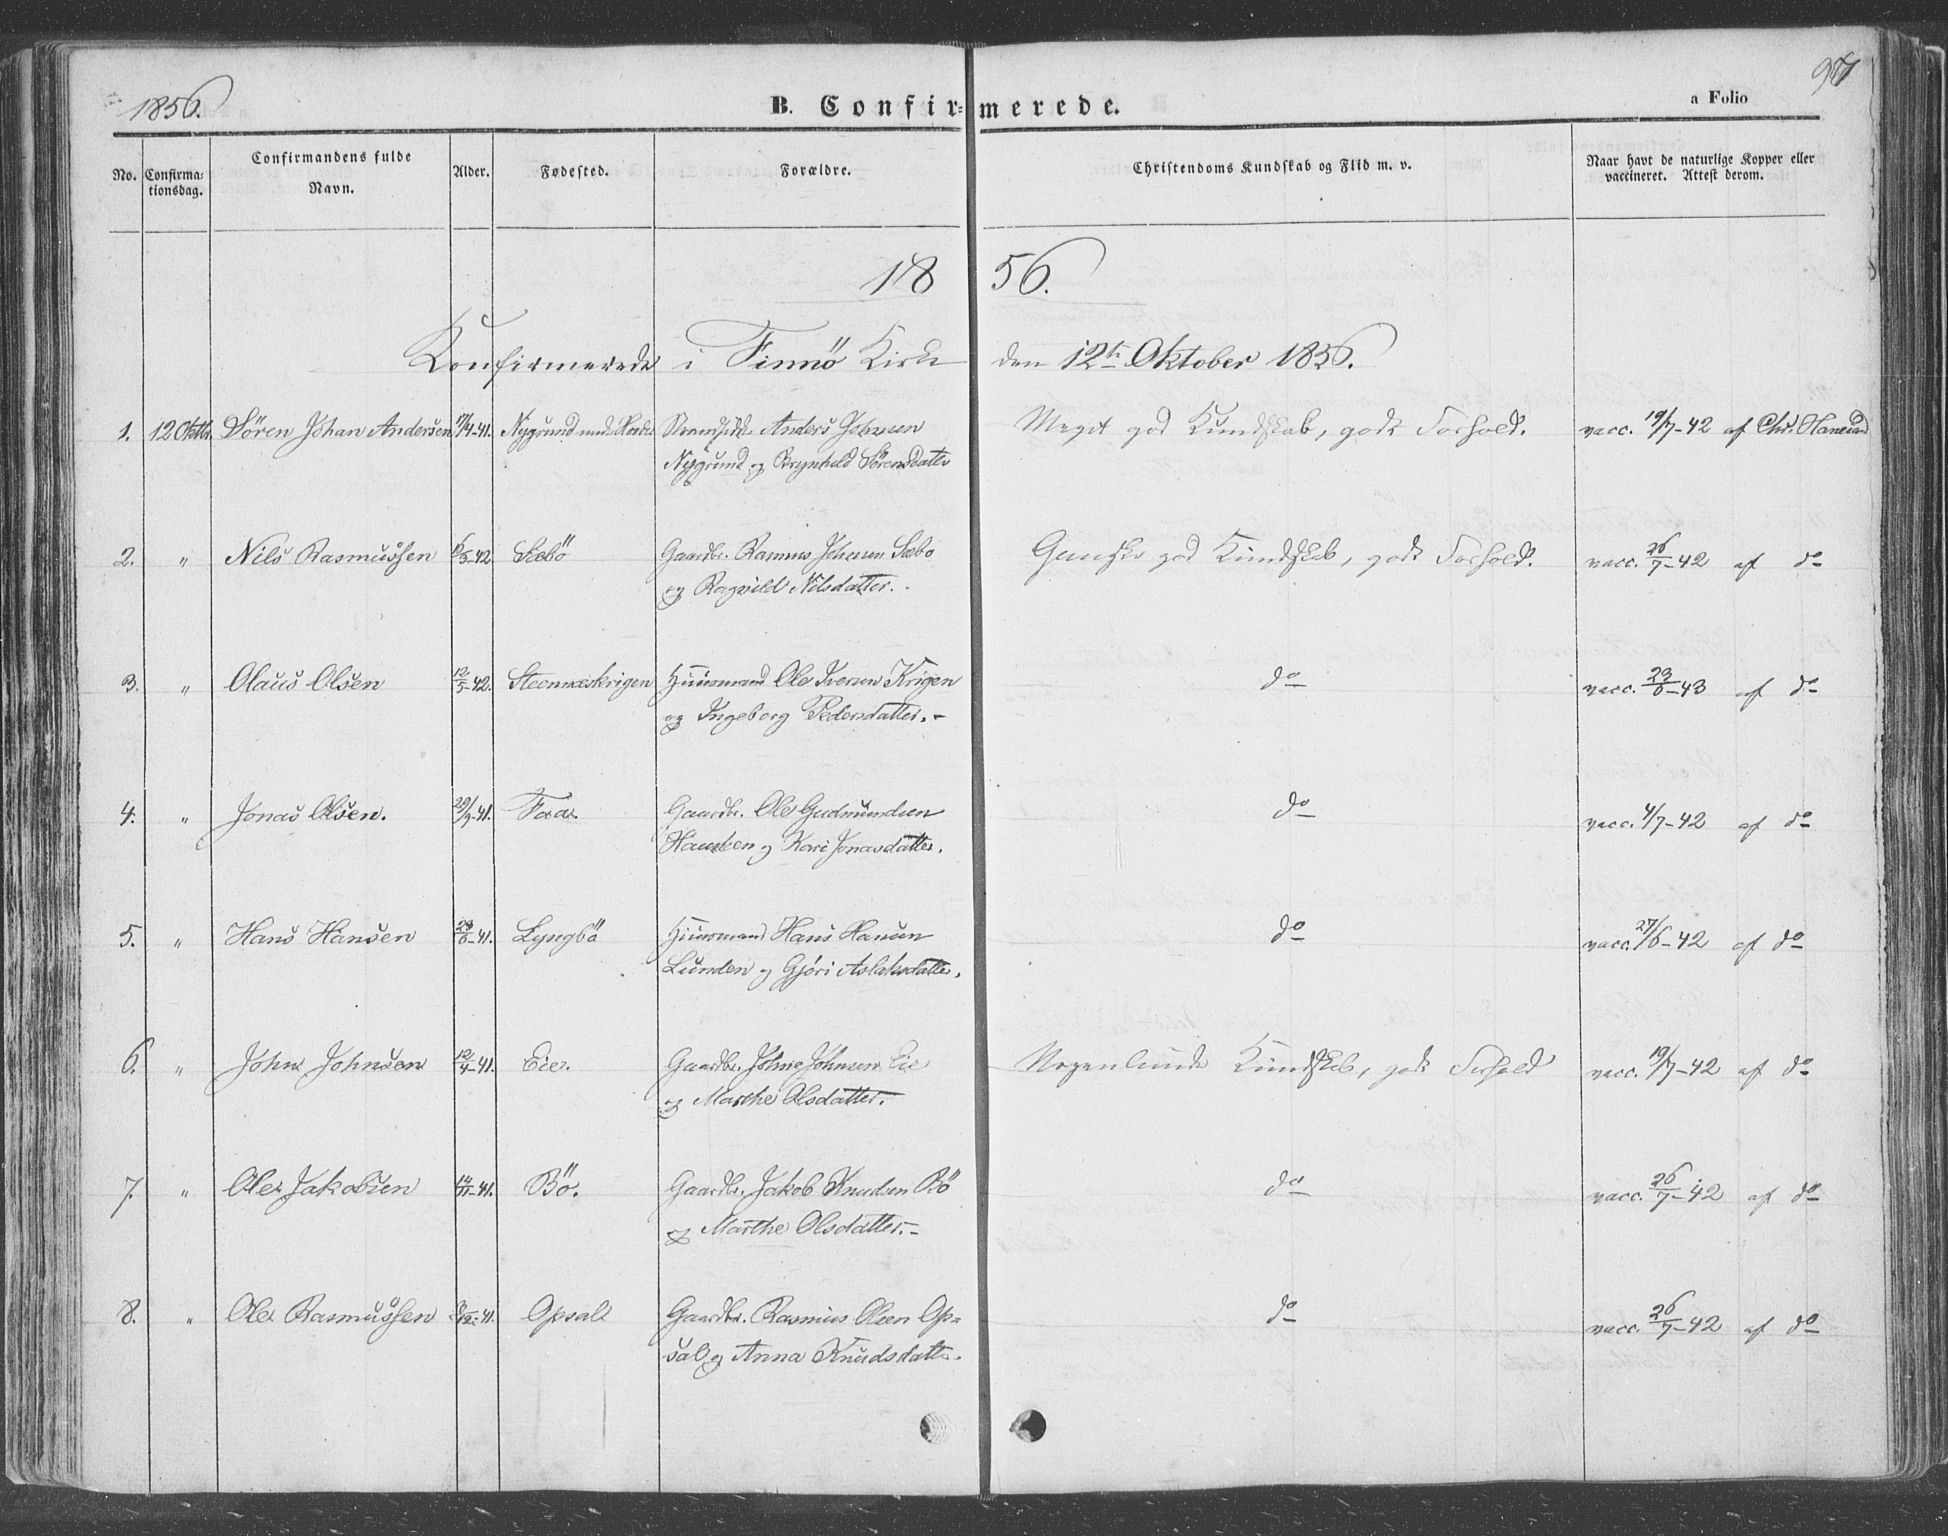 1856.
B. Confirmerede.
a Folio
No.
Confirma-
tionsdag.
Confirmandens fulde
Navn.
Alder.
Fødested.
Forældre.
Christendoms Kundskab og Flid m. v.
Naar havt de naturlige Kopper eller
vaccineret. Attest derom.
1856.
Konfirmerede i Finnö Kirke den 12te Oktober 1856.
1. 12 Oktbr. Sören Johan Andersen /4-41. Nygrund Anders Johnsen Meget god Kundskab, godt Forhold. vacc. 19/7-42 af Chr. Haneund
Nygrund og Brynhild Sörensdatter
2. " Nils Rasmussen /3-42 Sæbö Gaardbr. Rasmus Johnsen Sæbö Ganske god Kundskab, godt Forhold. vacc. 26/7-42 af do
og Ragnild Nilsdatter.
3. " Olaus Olsen 12/5-42. Steennæskrigen Huusmand Ole Iversen Krigen do vacc. 23/6-43 af do
og Ingeborg Pedersdatter.-
4. " Jonas Olsen. 29/9-41. Faae. Gaardbr. Ole Gudmundsen do vacc. 4/7-42 af do
Hausken og Kari Jonasdatter.
5. " Hans Hansen 23/6-41. Lyngbö Huusmand Hans Hansen do vacc. 27/6-42 af do
Lunden og Gjöri Aslaksdatter.
6. " John Johnsen 12/4-41. Eie. Gaardbr. John Johnsen Eie Nogenlunde Kundskab, godt Forhold vacc. 19/7-42 af do
og Marthe Olsdatter.
7. " Ole Jakobsen 14/11-41. Bö. Gaardbr. Jakob Knudsen Bö do vacc. 26/7-42 af do
og Marthe Olsdatter.-
8. " Ole Rasmussen /12-41 Opsall Gaardbr. Rasmus Olsen Op- do vacc. 26/7-42 af do
sal og Anna Knudsdatter.